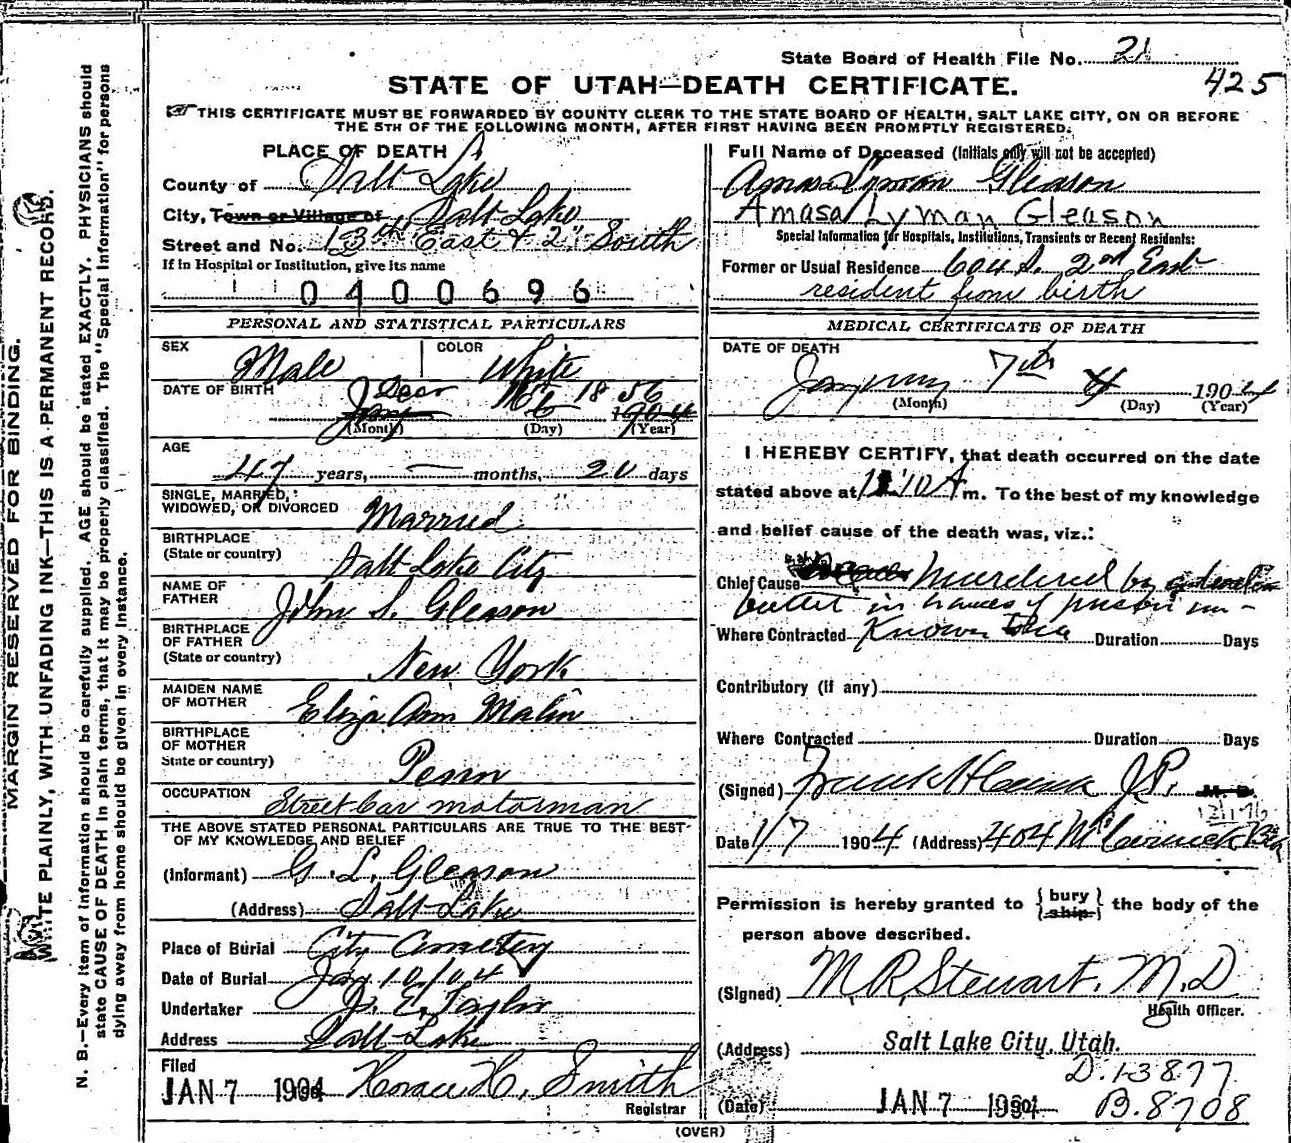 State Board of Health File No. 21
425
STATE OF UTAH—DEATH CERTIFICATE.
THIS CERTIFICATE MUST BE FORWARDED BY COUNTY CLERK TO THE STATE BOARD OF HEALTH, SALT LAKE CITY, ON OR BEFORE
THE 5TH OF THE FOLLOWING MONTH, AFTER FIRST HAVING BEEN PROMPTLY REGISTERED.
MARGIN RESERVED FOR BINDING.
WRITE PLAINLY, WITH UNFADING INK—THIS IS A PERMANENT RECORD.
N. B.—Every item of information should be carefully supplied. AGE should be stated EXACTLY. PHYSICIANS should
state CAUSE OF DEATH in plain terms, that it may be properly classified. The "Special Information" for persons
dying away from home should be given in every instance.
PLACE OF DEATH
County of Salt Lake
City, Town or Village of Salt Lake
Street and No. 13th East & 2" South
If in Hospital or Institution, give its name
0400696
PERSONAL AND STATISTICAL PARTICULARS
SEX Male COLOR White
DATE OF BIRTH Dec 1856
Jan 6 1904
(Month) (Day) (Year)
AGE
47 years, — months, 20 days
SINGLE, MARRIED,
WIDOWED, OR DIVORCED Married
BIRTHPLACE
(State or country) Salt Lake City
NAME OF
FATHER John S. Gleason
BIRTHPLACE
OF FATHER
(State or country) New York
MAIDEN NAME
OF MOTHER Eliza Ann Malin
BIRTHPLACE
OF MOTHER
State or country) Penn
OCCUPATION Street Car motorman
THE ABOVE STATED PERSONAL PARTICULARS ARE TRUE TO THE BEST
OF MY KNOWLEDGE AND BELIEF
(Informant) G. L. Gleason
(Address) Salt Lake
Place of Burial City Cemetery
Date of Burial Jan 10/04
Undertaker J. E. Taylor
Address Salt Lake
Filed
JAN 7 1904 Horace H. Smith
Registrar
Full Name of Deceased (Initials only will not be accepted)
Amasa Lyman Gleason
Amasa Lyman Gleason
Special Information for Hospitals, Institutions, Transients or Recent Residents:
Former or Usual Residence 604 S. 2nd East
resident from birth
MEDICAL CERTIFICATE OF DEATH
DATE OF DEATH
January 7th 1904
(Month) (Day) (Year)
I HEREBY CERTIFY, that death occurred on the date
stated above at 10 A m. To the best of my knowledge
and belief cause of the death was, viz.:
Chief Cause Murdered by
bullet in hands of person un-
Where Contracted Known Duration Days
Contributory (if any)
Where Contracted Duration Days
(Signed) Frank H J.P. M. D.
Date 1/7 1904 (Address) 404 McCornick
Permission is hereby granted to {bury ship} the body of the
person above described.
(Signed) M. R. Stewart. M.D
Health Officer.
(Address) Salt Lake City, Utah.
D.13877
(Date) JAN 7 1904 B.8708
(OVER)